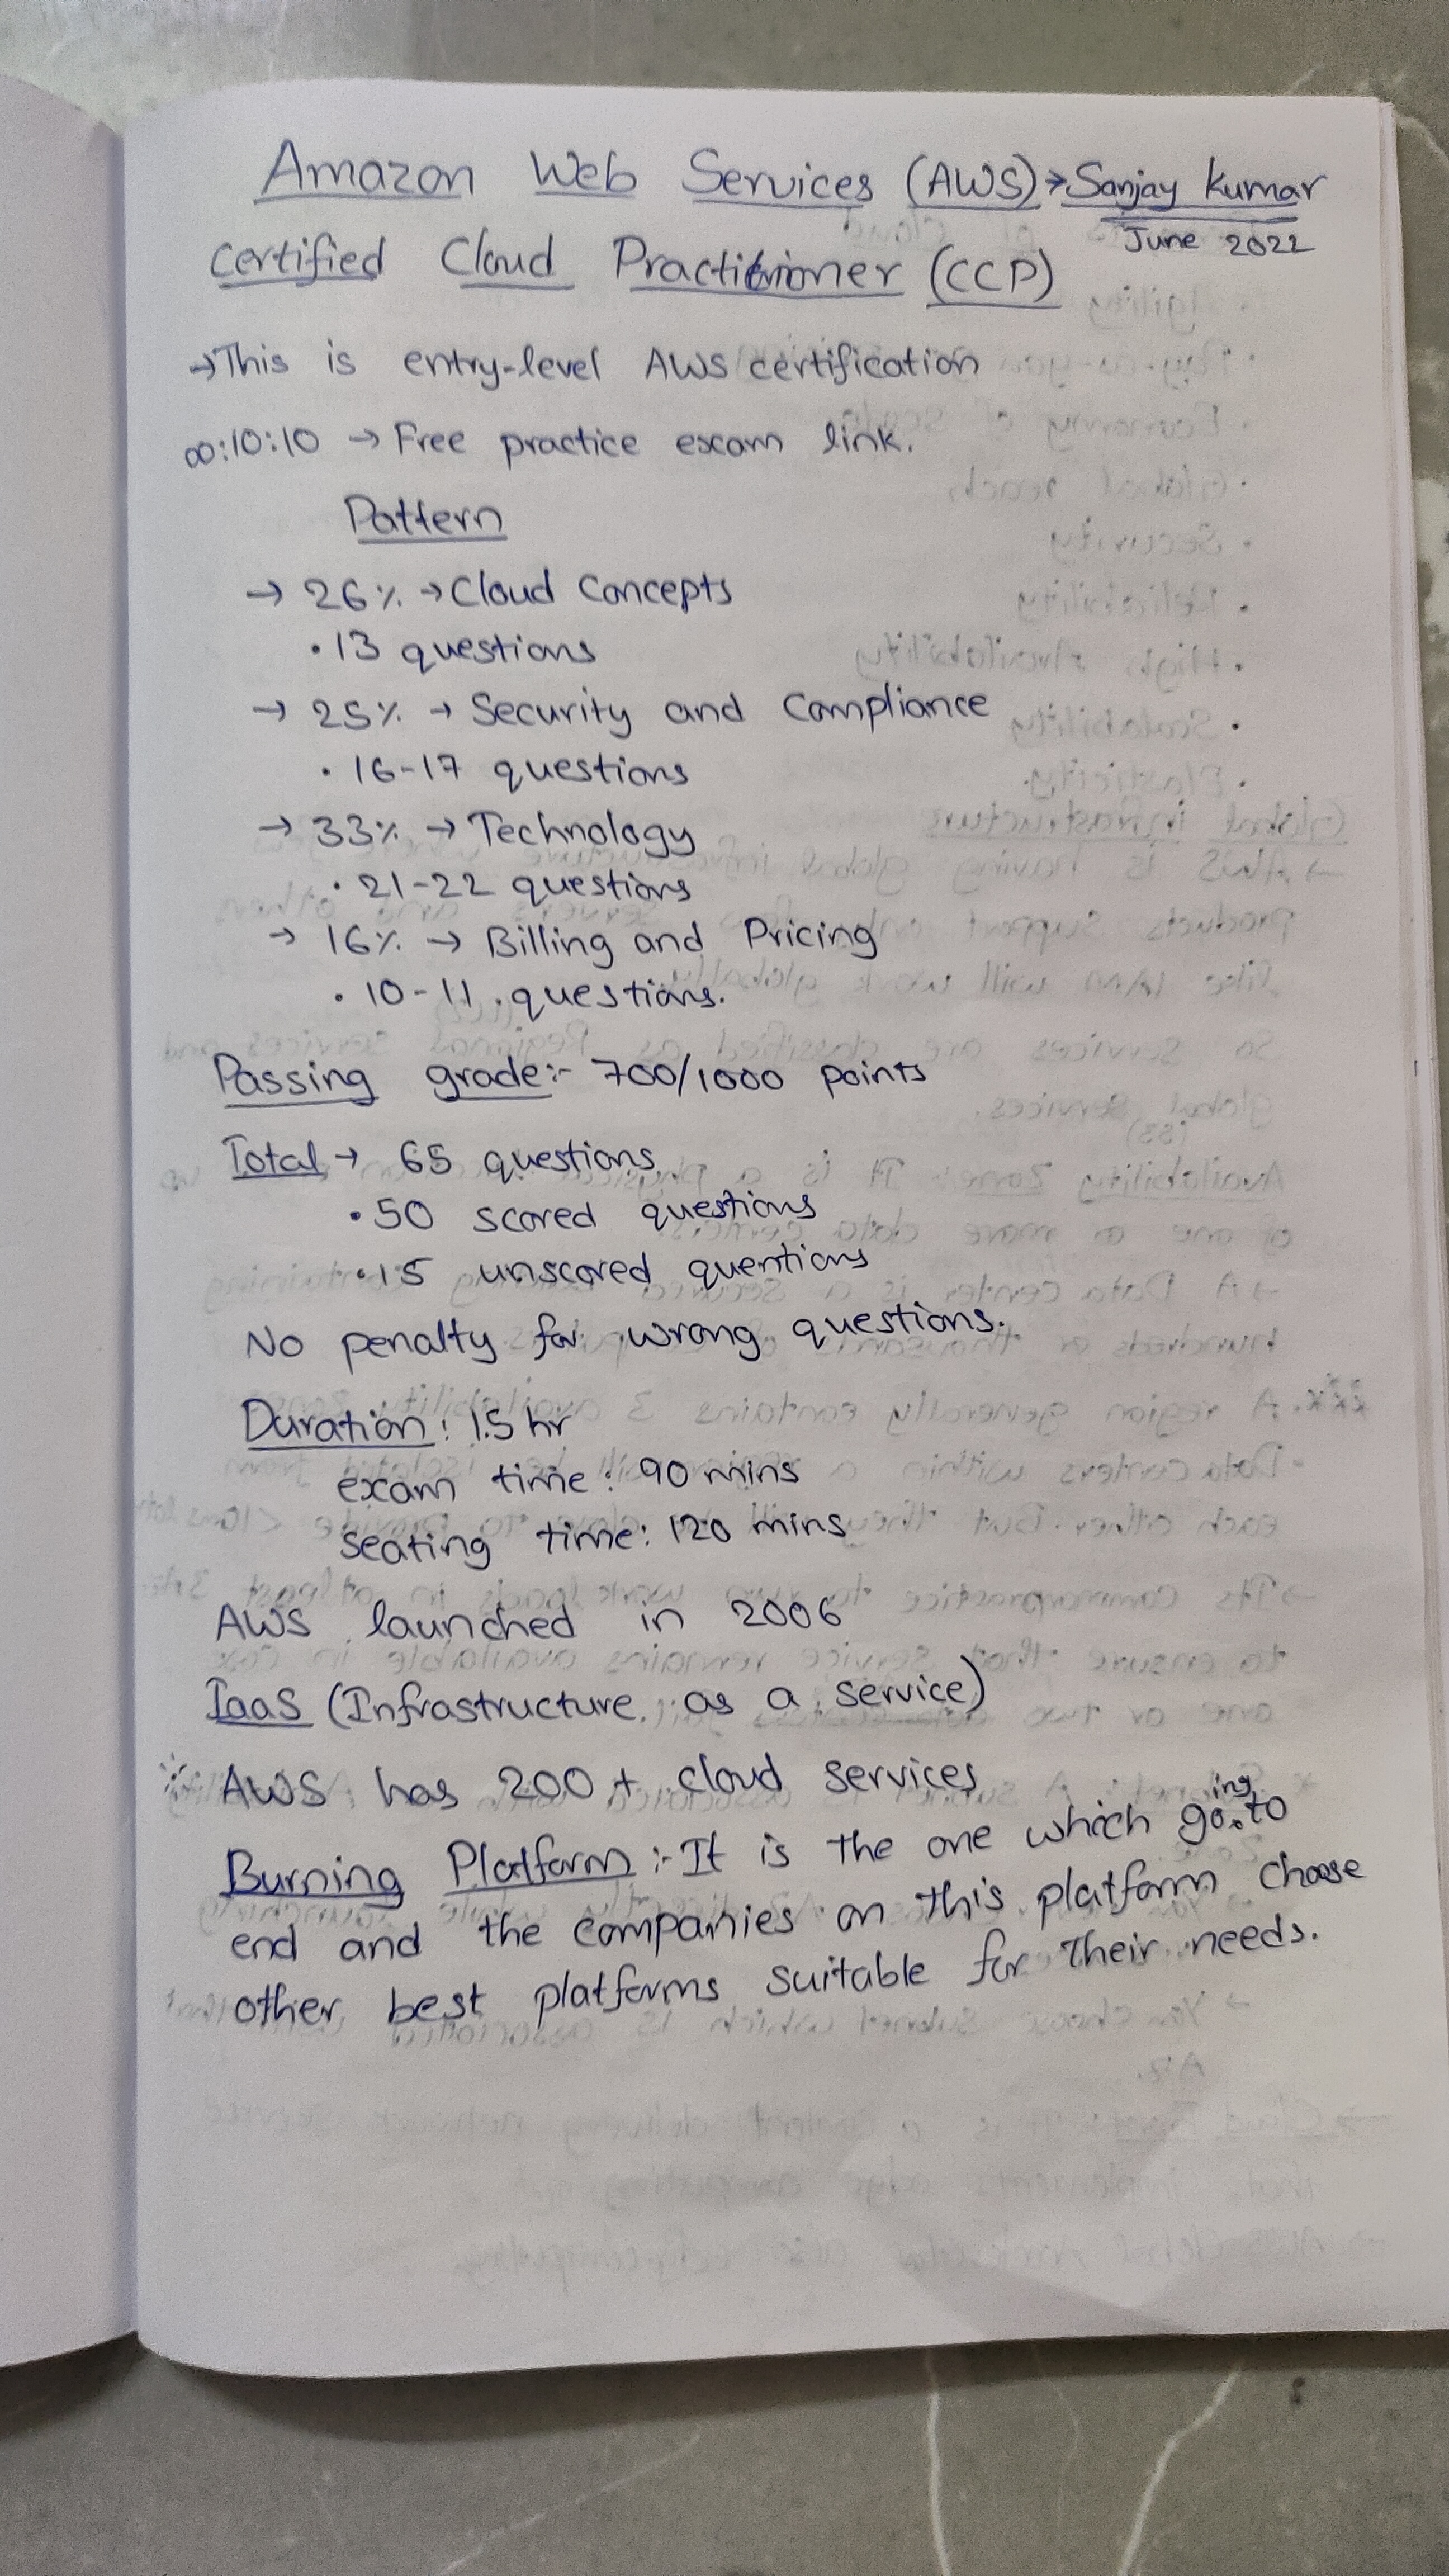 Amazon Web Services (AWS)→Sanjay Kumar
June 2022
Certified Cloud Practitioner (CCP)
→This is entry-level AWS certification
00:10:10 → Free practice exam link.
Pattern
→ 26% → Cloud Concepts
• 13 questions
→ 25% → Security and Compliance
• 16-17 questions
→ 33% → Technology
• 21-22 questions
→ 16% → Billing and Pricing
• 10-11 questions.
Passing grade:- 700/1000 points
Total → 65 questions
• 50 scored questions
• 15 unscored quentions
No penalty for wrong questions.
Duration: 1.5 hr
exam time: 90 mins
seating time: 120 mins
AWS launched in 2006
IaaS (Infrastructure as a service)
AWS has 200+ cloud services
Burning Platform:- It is the one which going to
end and the companies on this platform choose
other best platforms suitable for their needs.